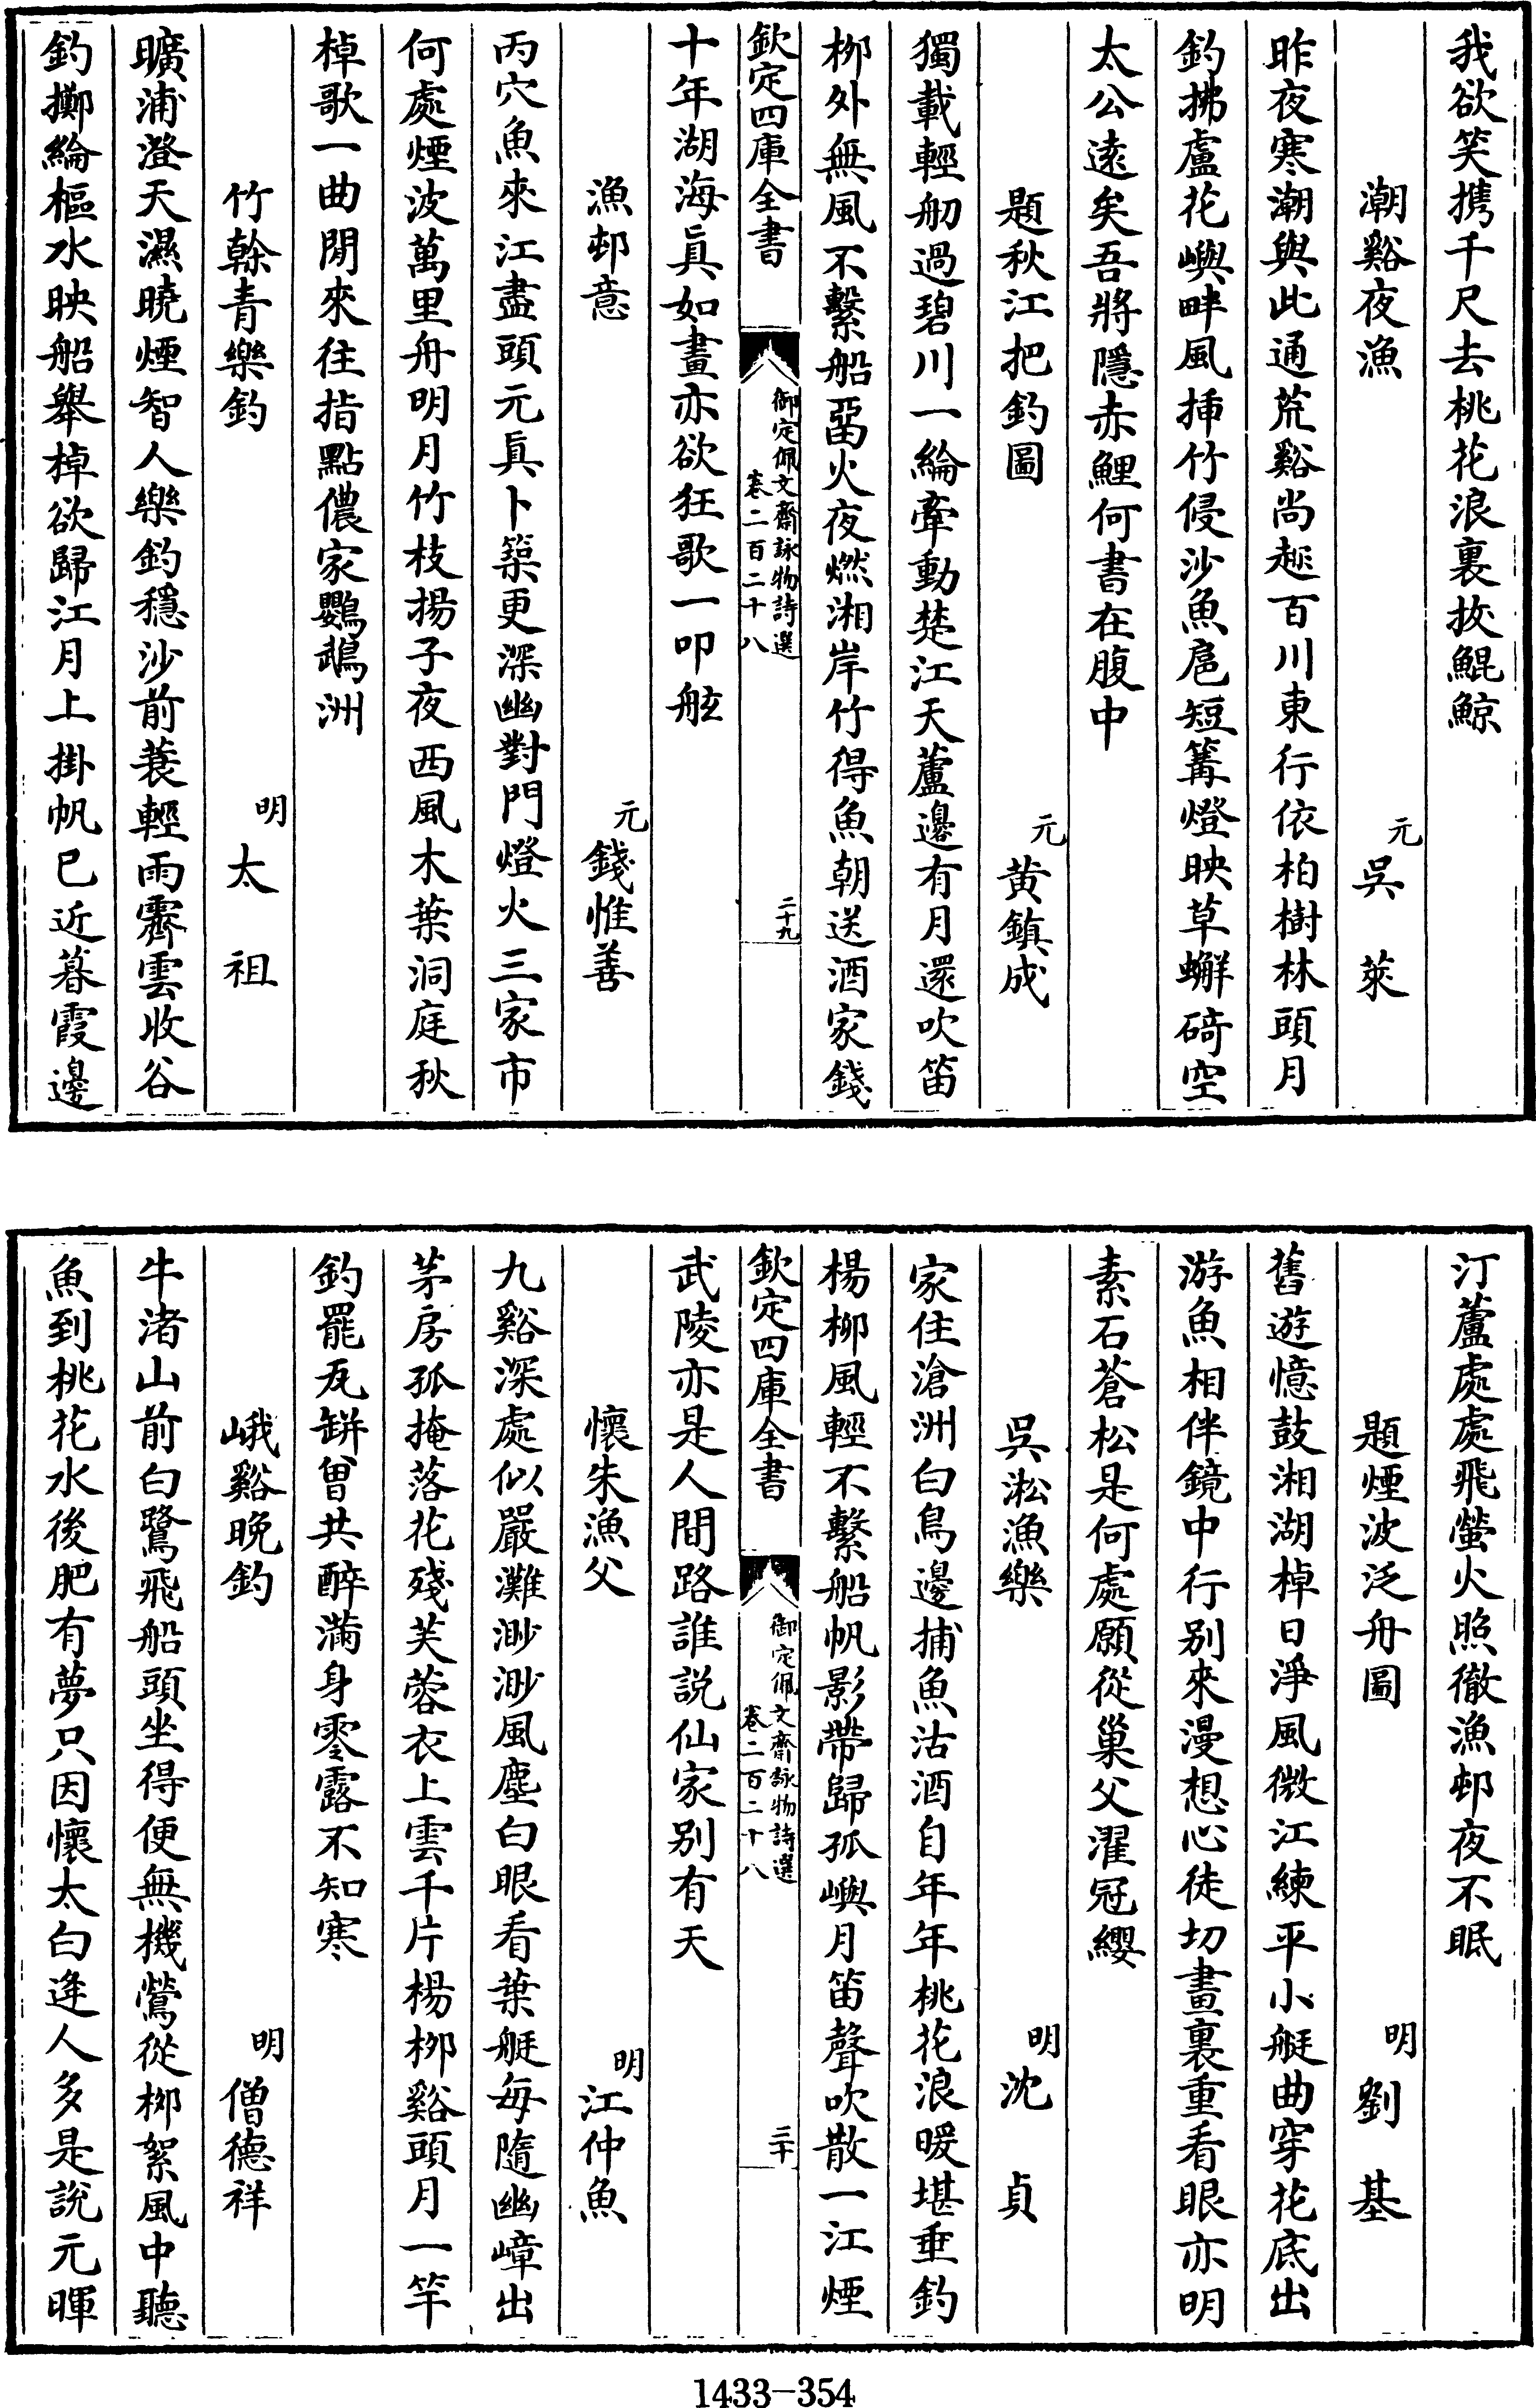 我欲笑攜千尺去桃花浪裏掞鯤鯨
潮谿夜漁 元 吳萊
昨夜寒潮與此通荒谿尚趂百川東行依柏樹林頭月
釣拂盧花嶼畔風揷竹侵沙魚扈短篝燈映草蠏碕空
太公遠矣吾將隱赤鯉何書在腹中
題秋江把釣圖 元 黄鎮成
獨載輕舠過碧川一綸牽動楚江天蘆邊有月還吹笛
栁外無風不繫船畱火夜燃湘岸竹得魚朝送酒家錢
欽定四庫全書 御定佩文齋詠物詩選 卷二百二十八 二十九
十年湖海眞如畫亦欲狂歌一叩舷
漁邨意 元 錢惟善
丙穴魚來江盡頭元眞卜築更深幽對門燈火三家市
何處煙波萬里舟明月竹枝揚子夜西風木葉洞庭秋
棹歌一曲閒來往指點儂家鸚鵡洲
竹榦青樂釣 明 太祖
曠浦澄天濕曉煙智人樂釣穩沙前蓑輕雨霽雲收谷
釣擲綸樞水映船舉棹欲歸江月上掛帆已近暮霞邊
汀蘆處處飛螢火照徹漁邨夜不眠
題煙波泛舟圖 明 劉基
舊遊憶鼓湘湖棹日淨風微江練平小艇曲穿花底出
游魚相伴鏡中行别來漫想心徒切畫裏重看眼亦明
素石蒼松是何處願從巢父濯冠纓
吳淞漁樂 明 沈貞
家住滄洲白鳥邊捕魚沽酒自年年桃花浪暖堪垂釣
楊栁風輕不繫船帆影帶歸孤嶼月笛聲吹散一江煙
欽定四庫全書 御定佩文齋詠物詩選 卷二百二十八 三十
武陵亦是人間路誰説仙家别有天
懷朱漁父 明 江仲魚
九谿深處似嚴灘渺渺風塵白眼看葉艇每隨幽嶂出
茅房孤掩落花殘芙蓉衣上雲千片楊栁谿頭月一竿
釣罷瓦缾曾共醉滿身零露不知寒
峨谿晚釣 明 僧德祥
牛渚山前白鷺飛船頭坐得便無機鶯從栁絮風中聽
魚到桃花水後肥有夢只因懷太白逢人多是説元暉
1433-354